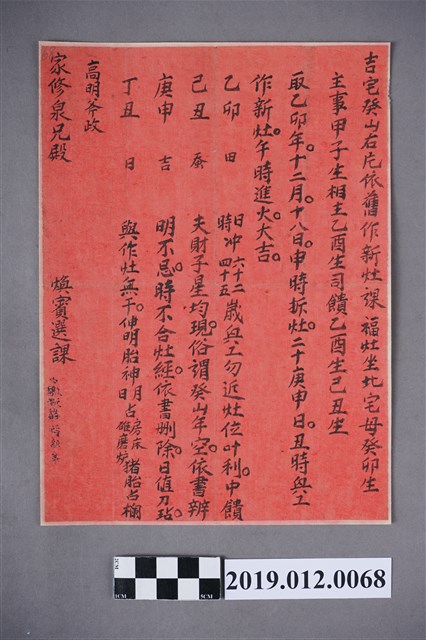 吉宅癸山右片依舊作新灶課福灶坐北宅母癸卯生
主事甲子生相主乙酉生司饋乙酉生己丑生
取乙卯年。十二月。十八日。申時拆灶。二十庚申日。丑時興工
作新灶。午時進火。大吉。
乙卯 田 日冲六十二 時 四十五 歲與工勿近灶位叶利。中饋
己丑 蚕 夫財子星均現。俗謂癸山年空。依書辨
庚申 吉 明不忌。時不合灶經。依書删除。日值刀砧。
丁丑 日 與作灶無干。伸明胎神月占房床 日占碓磨炉 猪胎占欄
高明斧政
家修泉兄殿 煥賓選課
2019.012.0068